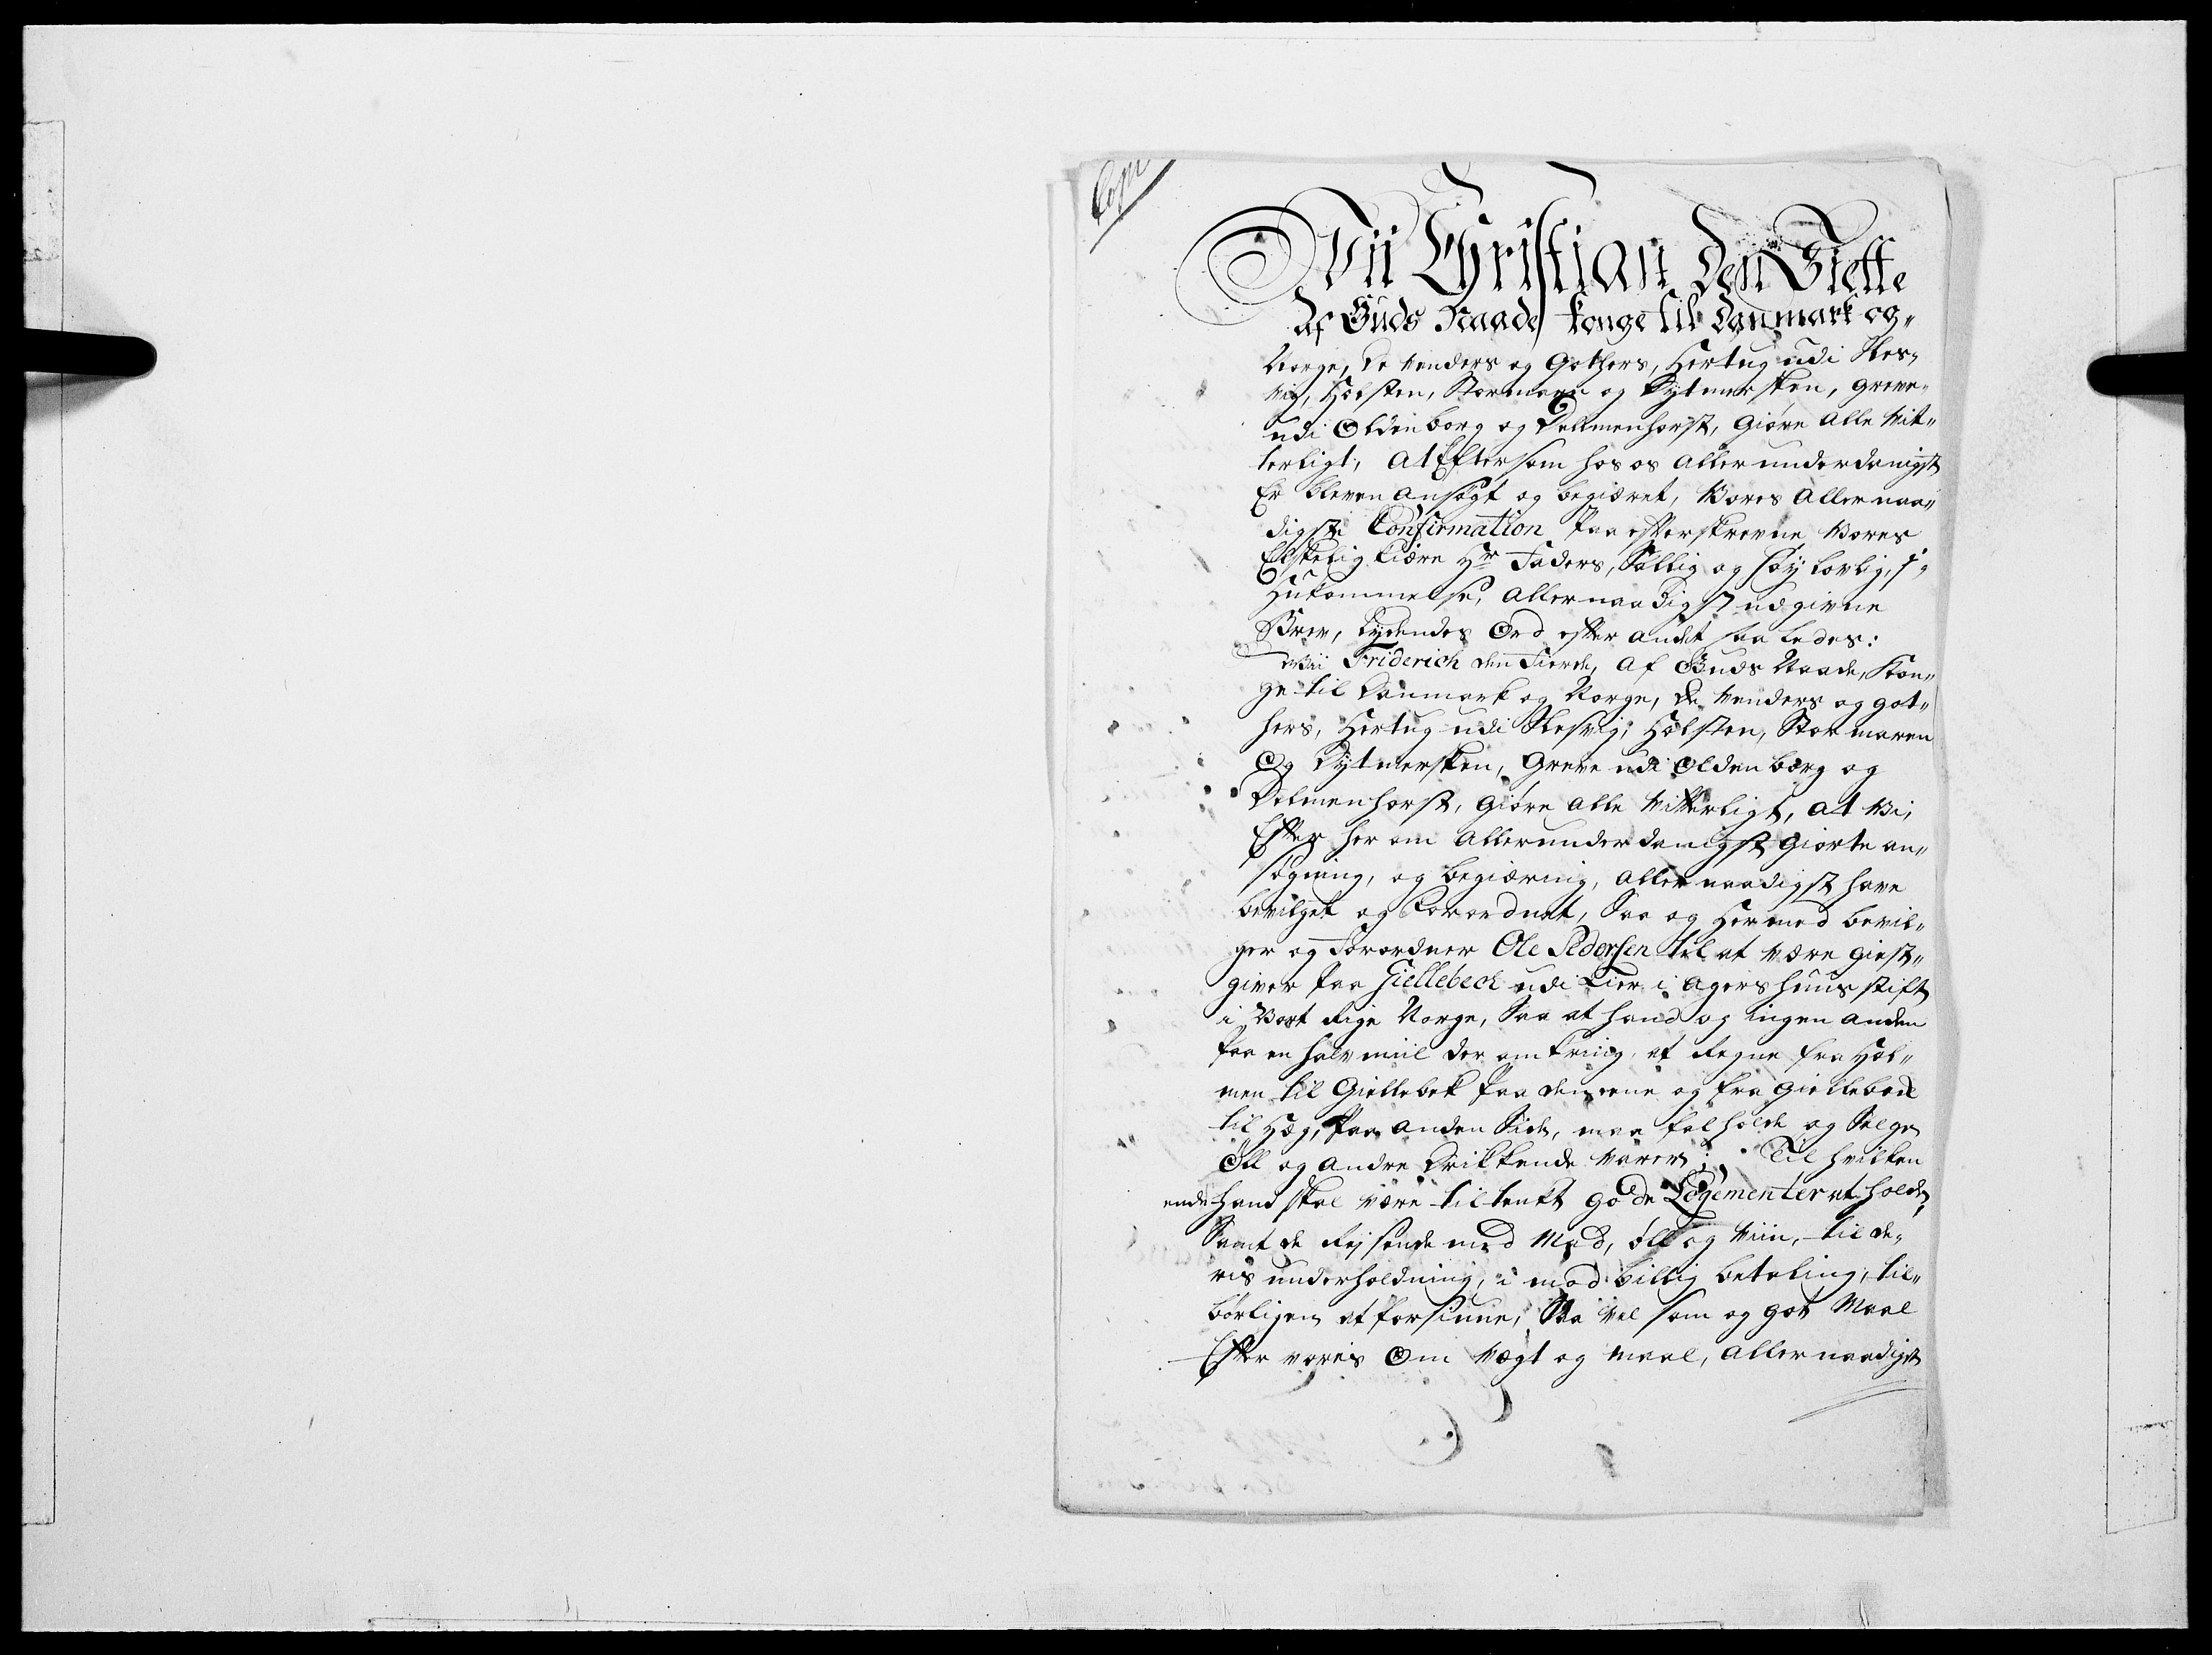 Copie
Vii Christian den Siette
Af Guds Naade Konge til Danmark og„
Norge, de Venders og Gothers, Hertug udi Sles„
vig, Holsten, Stormarn og Dytmersken, Greve„
udi Oldenborg og Dellmenhorst, Giøre alle Vit„
terligt, at Eftersom hos os allerunderdanigst
Er bleven ansøgt og begiæret, Vores Allernaa„
digste Confirmation paa efterskrevne Vores
Elskelig kiære Hr Faders, Sallig og høy lovlig, J„
Hukommelse, allernaadigst udgivne
Brev, Lydendes Ord efter andet saaledes:
Vii Friderich den Fierde, af Guds Naade, Kon„
ge til Danmark og Norge, de Venders og Got„
hers, Hertug udi Slesvig, Holsten, Stormaren
Og Dytmersken, Greve udi Oldenborg og
Delmenhorst, giøre alle Vitterligt, at Vi,
Efter her om allerunderdanigst giorte an„
søgning, og begiæring, allernaadigst have
bevilget og Forordnet, Saa og Hermed bevil„
ger og Forordner Ole Pedersen til at være giest„
giver paa Giellebeck udi Lier i Agershuus stift
i Vort Rige Norge, Saa at hand og ingen anden
paa en halv miil der omkring, at Regne fra Hol„
men til Giellebek paa den eene og fra Giellebeck
til Høg, paa anden Side, maa fal holde og Selge
Øll og andre Drikkende Varer; Til hvilken
ende hand skal være tiltænkt gode Logementer at holde,
Samt de Rejsende med Mad, øll og Viin, til de„
ris underholdning, i mod billig betaling, til„
børligen at forsiune, Saa vel som og got Maal
Efter voris Om Vægt og maal, allernaadigst